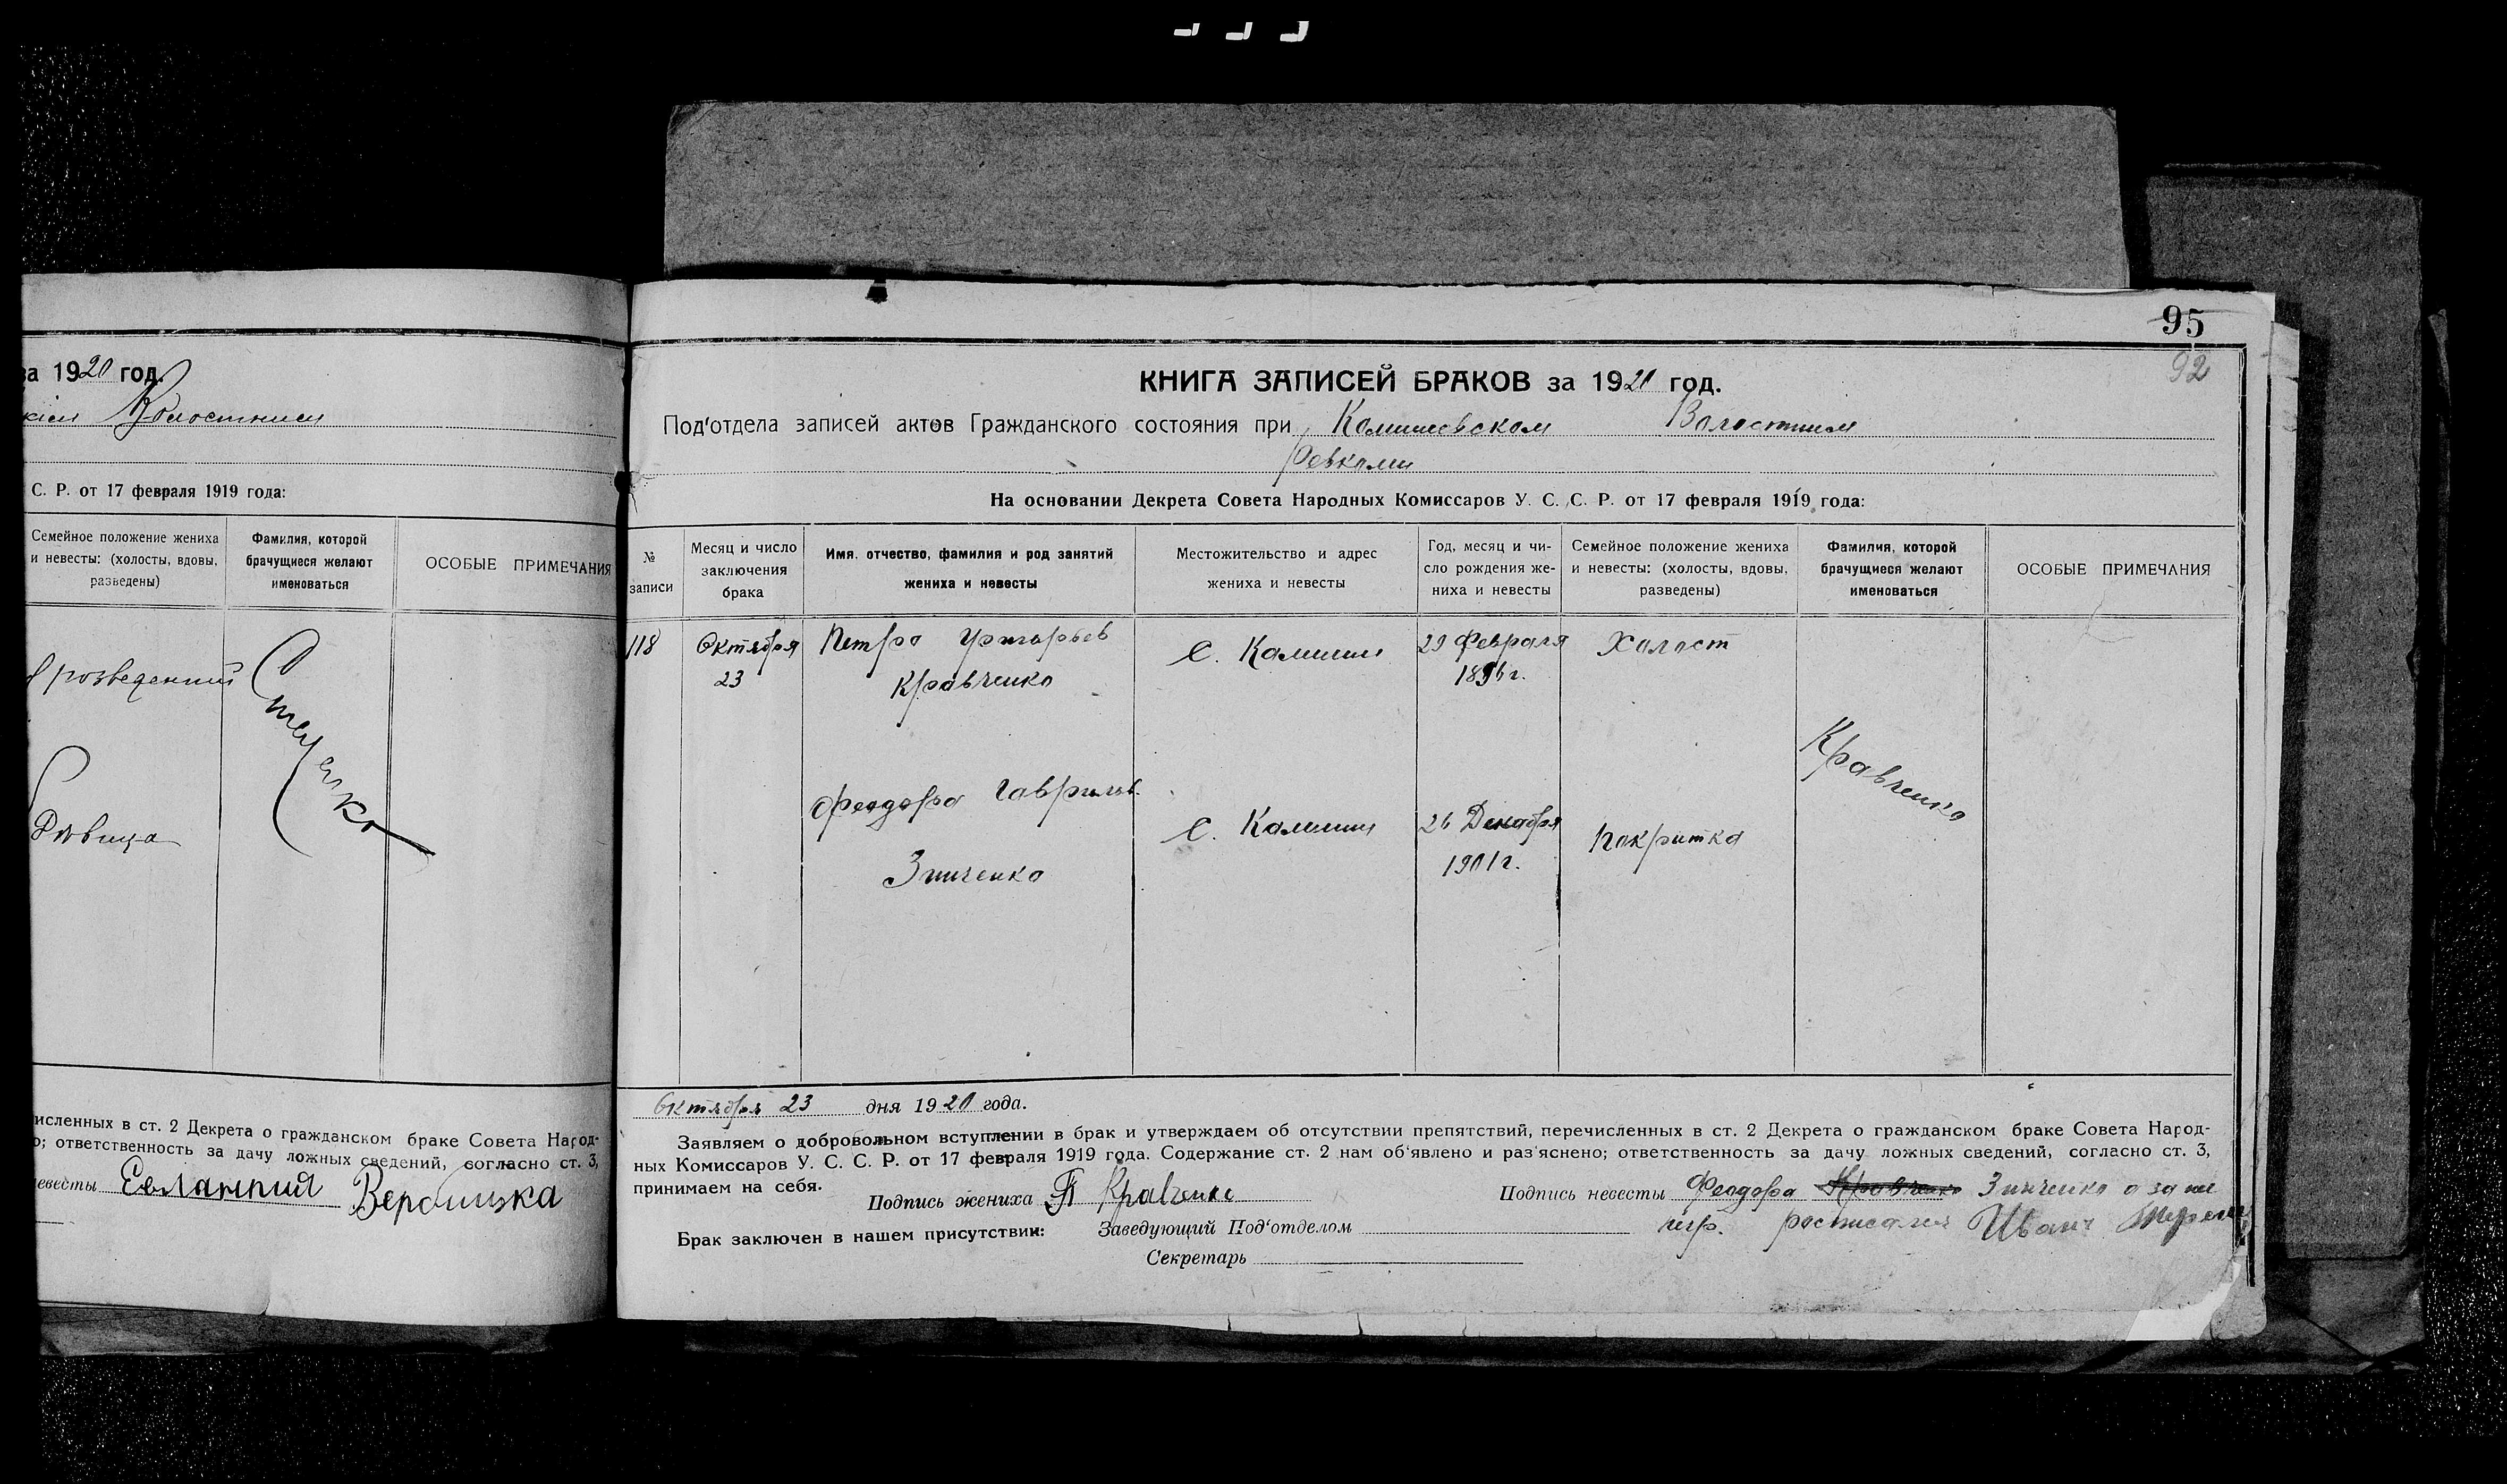 за 1920 год.
Волостним
С. Р. от 17 февраля 1919 года:
Семейное положение жениха и невесты: (холосты, вдовы, разведены)
Фамилия, которой брачущиеся желают именоваться
ОСОБЫЕ ПРИМЕЧАНИЯ
розведенний
Дѣвица
численных в ст. 2 Декрета о гражданском браке Совета Народ-
о; ответственность за дачу ложных сведений, согласно ст. 3,
невесты Евлампия
95
92
КНИГА ЗАПИСЕЙ БРАКОВ за 1920 год.
Под'отдела записей актов Гражданского состояния при Комишевском Волостним
Ревкоми
На основании Декрета Совета Народных Комиссаров У. С. С. Р. от 17 февраля 1919 года:
№ записи
Месяц и число заключения брака
Имя, отчество, фамилия и род занятий жениха и невесты
Местожительство и адрес жениха и невесты
Год, месяц и число рождения жениха и невесты
Семейное положение жениха и невесты: (холосты, вдовы, разведены)
Фамилия, которой брачущиеся желают именоваться
ОСОБЫЕ ПРИМЕЧАНИЯ
118 Октября Петро Григорьев С. Комиши 29 Февраля Холост
23 Кравченко 1896 г.
Кравченко
Феодора Гаврилов. С. Комиши 26 Декабря Покритка
Зинченко 1901 г.
Октября 23 дня 1920 года.
Заявляем о добровольном вступлении в брак и утверждаем об отсутствии препятствий, перечисленных в ст. 2 Декрета о гражданском браке Совета Народ-
ных Комиссаров У. С. С. Р. от 17 февраля 1919 года. Содержание ст. 2 нам об'явлено и раз'яснено; ответственность за дачу ложных сведений, согласно ст. 3,
принимаем на себя.
Подпись жениха П Кравченко Подпись невесты Феодора Кравченко Зинченко а за не
гр. росписался Иван
Брак заключен в нашем присутствии: Заведующий Под'отделом
Секретарь